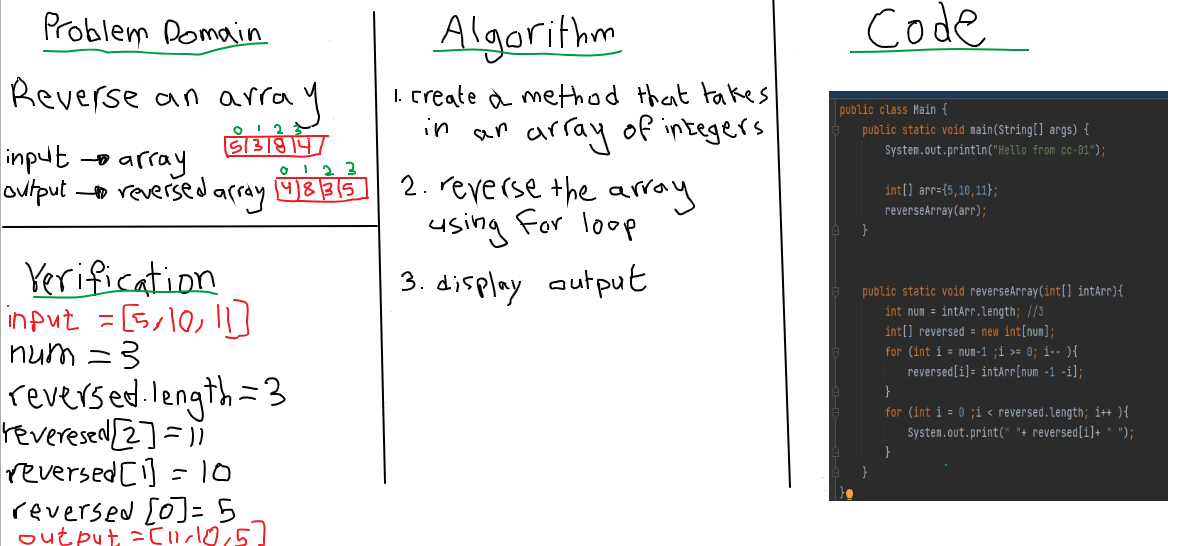 Problem Domain
Reverse an array
0 1 2 3
input → array 5 3 8 4
0 1 2 3
output → reversed array 4 8 3 5
Verification
input = [5,10,11]
num = 3
reversed.length = 3
reveresed[2] = 11
reversed[1] = 10
reversed [0] = 5
output = [11,10,5]
Algorithm
1. create a method that takes
in an array of integers
2. reverse the array
using For loop
3. display output
Code
public class Main {
public static void main(String[] args) {
System.out.println("Hello from cc-01");
int[] arr={5,10,11};
reverseArray(arr);
}
public static void reverseArray(int[] intArr){
int num = intArr.length; //3
int[] reversed = new int[num];
for (int i = num-1 ;i >= 0; i-- ){
reversed[i]= intArr[num -1 -i];
}
for (int i = 0 ;i < reversed.length; i++ ){
System.out.print(" "+ reversed[i]+ " ");
}
}
}